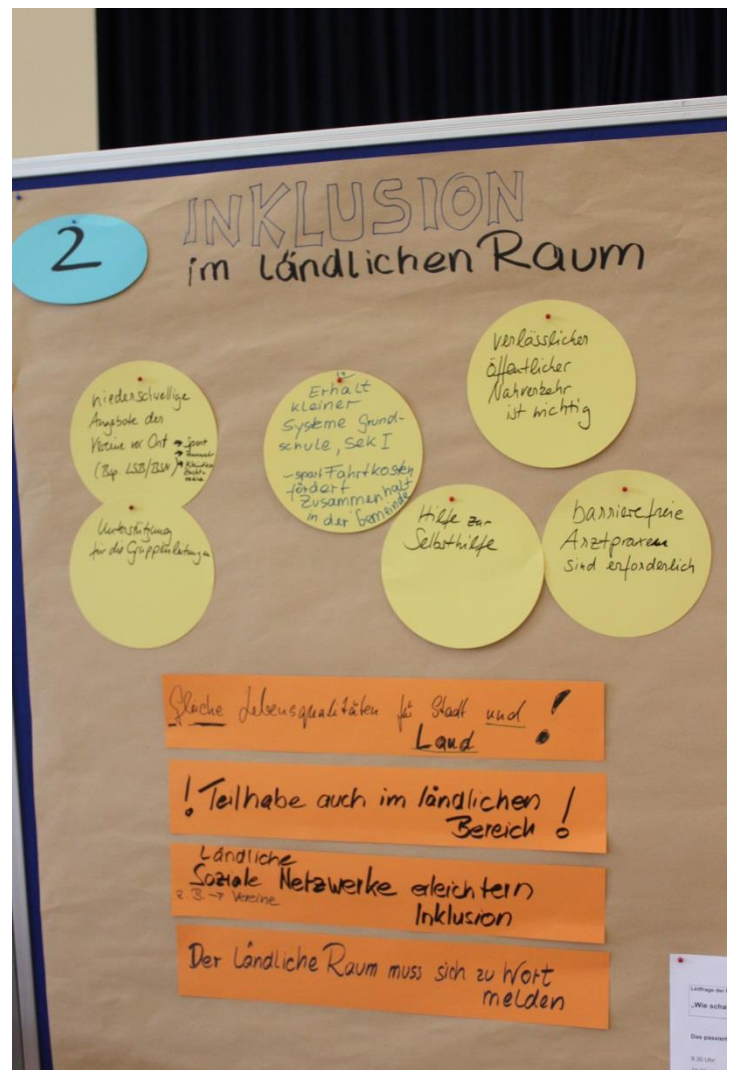 2
INKLUSION
im Ländlichen Raum
niederschwellige
Angebote der
Vereine vor Ort → Sport
→ Feuerwehr
(Bsp. LSB/BSN) → Kleintier
zucht-
vereine
Unterstützung
für die Gruppenleitungen
Erhalt
kleiner
Systeme Grund-
schule, Sek I
- spart Fahrtkosten
fördert
Zusammenhalt
in der Gemeinde
Verlässlicher
öffentlicher
Nahverkehr
ist wichtig
Hilfe zur
Selbsthilfe
barrierefreie
Arztpraxen
sind erforderlich
Gleiche Lebensqualitäten für Stadt und !
Land
! Teilhabe auch im ländlichen !
Bereich
Ländliche
Soziale Netzwerke erleichtern
z.B. → Vereine
Inklusion
Der Ländliche Raum muss sich zu Wort
melden
Leitfrage der
„Wie scha
Das passiert
9.30 Uhr: